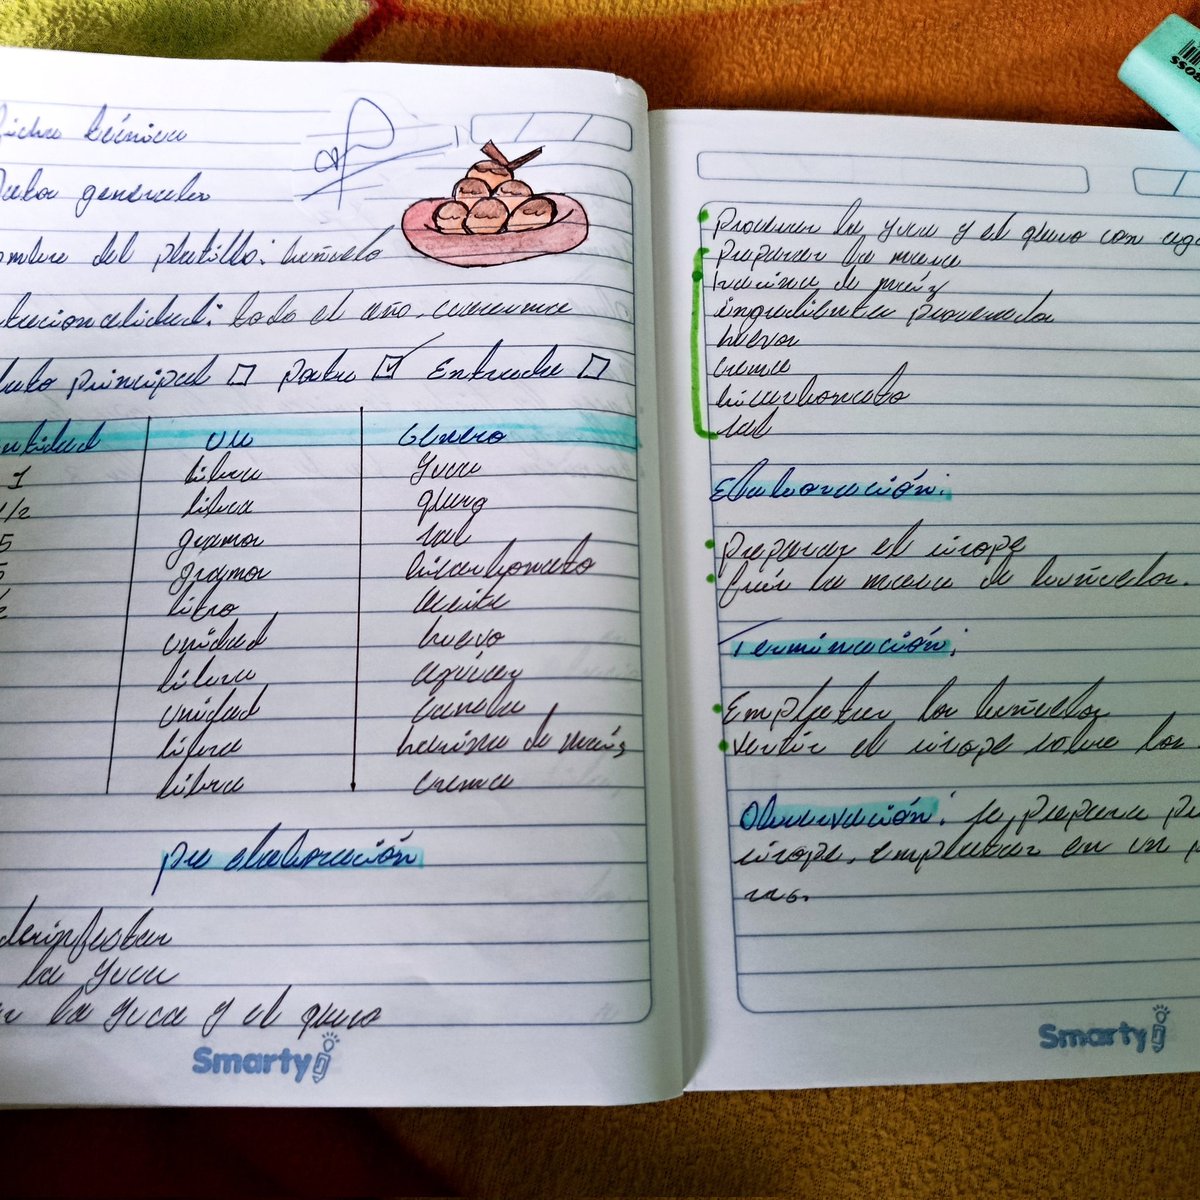 ficha técnica
Datos generales
ombre del platillo: buñuelo
tacionalidad: todo el año, cuaresma
lato principal postre Entrada
antidad UM Género
1 libra Yuca
1/2 libra queso
5 gramos sal
5 gramos bicarbonato
litro aceite
unidad huevo
libra azúcar
unidad canela
libra harina de maíz
libra crema
pre elaboración
desinfectar
la Yuca
la yuca y el queso
Smarty
Procesar la yuca y el queso con
preparar la masa
harina de maíz
ingredientes procesados
huevos
crema
bicarbonato
sal
Elaboración:
preparar el sirope
freír la masa de buñuelos.
Terminación:
Emplatar los buñuelos
vertir el sirope sobre los
Observación: se prepara
sirope, emplatar en un
Smarty